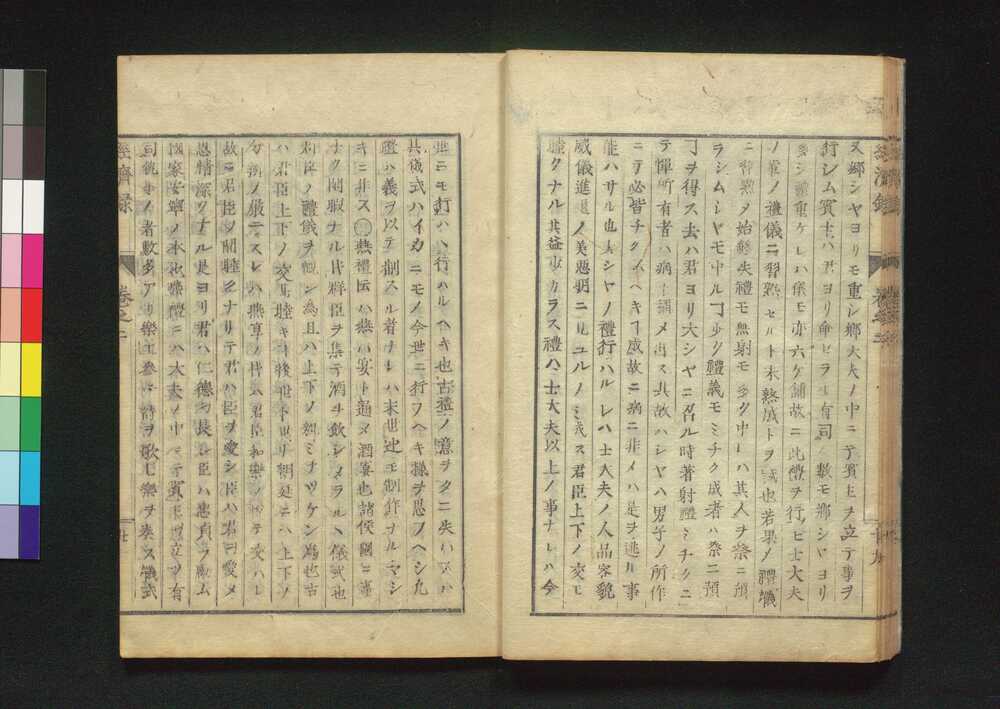 又郷シヤヨリモ重シ郷大夫ノ中ニテ賓主ヲ立テ事ヲ
行シム賓主ハ君ヨリ命セラレ有司ノ數モ郷シヤヨリ
多シ禮重ケレハ儀モ亦六ケ舖故ニ此禮ヲ行ヒ士大夫
ノ輩ノ禮儀ニ習熟セルト未熟成トヲ試也若果ノ禮儀
ニ習熟メ始終失禮モ無射モ多ク中レハ其人ヲ祭ニ預
ラシムシヤモ中ルヿ少ク禮義モミチク成者ハ祭ニ預
ヿヲ得ス去ハ君ヨリ大シヤニ召ル時著射禮ミチクニ
テ憚所有者ハ病ト稱メ出ス其故ハシヤハ男子ノ所作
ニテ必皆チクスヘキヿ成故ニ病ニ非メハ是ヲ逃ル事
能ハサル也大シヤノ禮行ハルレハ士大夫ノ人品容貌
威儀進退ノ美惡明ニ見ユルノミ成ス君臣上下ノ交モ
睦クナル其益少カラス禮ハ士大夫以上ノ事ナレハ今
世ニモ行ハヽ行ハルヘキ也古禮ノ意ヲタニ失ハスハ
其儀式ハイカニモノ今世ニ行フヘキ樣ヲ思フヘシ凡
禮ハ義ヲ以テ制スル者ナレハ末世迚モ制作ナルマシ
キニ非ス〇燕禮云ハ燕ハ宴ト通メ酒宴也諸侯國ニ事
ナク閑暇ナル时群臣ヲ集テ酒ヲ飲シメラルヽ儀式也
君臣ノ禮儀ヲ明ン為且ハ上下ノ親ミナツケン為也古
ハ君臣上下ノ交リ睦キヿ後世ト異リ朝廷ニハ上下ノ
分別ノ嚴ニスレハ燕享ノ时ハ君臣和樂ノハテ交ハレ
故ニ君臣ノ間睦クナリテ君ハ臣ヲ愛シ臣ハ君ヲ愛メ
恩情深クナル是ヨリ君ハ仁德ヲ長シ臣ハ忠貞ヲ勵ム
國家安寧ノ本也燕禮ニハ大夫ノ中ニテ賓主ヲ立ツ有
司執事ノ者數多アリ樂工參ニ詩ヲ歌ヒ樂ヲ奏ス儀式
經濟録
卷之二
廿